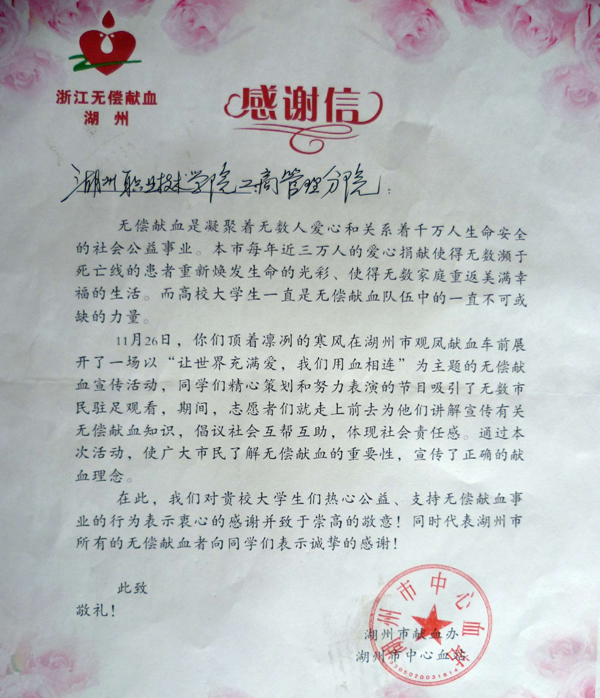 浙江无偿献血
湖州
感谢信
湖州职业技术学院工商管理分院：
无偿献血是凝聚着无数人爱心和关系着千万人生命安全
的社会公益事业。本市每年近三万人的爱心捐献使得无数濒于
死亡线的患者重新焕发生命的光彩、使得无数家庭重返美满幸
福的生活。而高校大学生一直是无偿献血队伍中的一直不可或
缺的力量。
11月26日，你们顶着凛冽的寒风在湖州市观风献血车前展
开了一场以“让世界充满爱，我们用血相连”为主题的无偿献
血宣传活动，同学们精心策划和努力表演的节目吸引了无数市
民驻足观看，期间，志愿者们就走上前去为他们讲解宣传有关
无偿献血知识，倡议社会互帮互助，体现社会责任感。通过本
次活动，使广大市民了解无偿献血的重要性，宣传了正确的献
血理念。
在此，我们对贵校大学生们热心公益、支持无偿献血事
业的行为表示衷心的感谢并致于崇高的敬意！同时代表湖州市
所有的无偿献血者向同学们表示诚挚的感谢！
此致
敬礼！
湖州市中心血站
湖州市献血办
湖州市中心血站